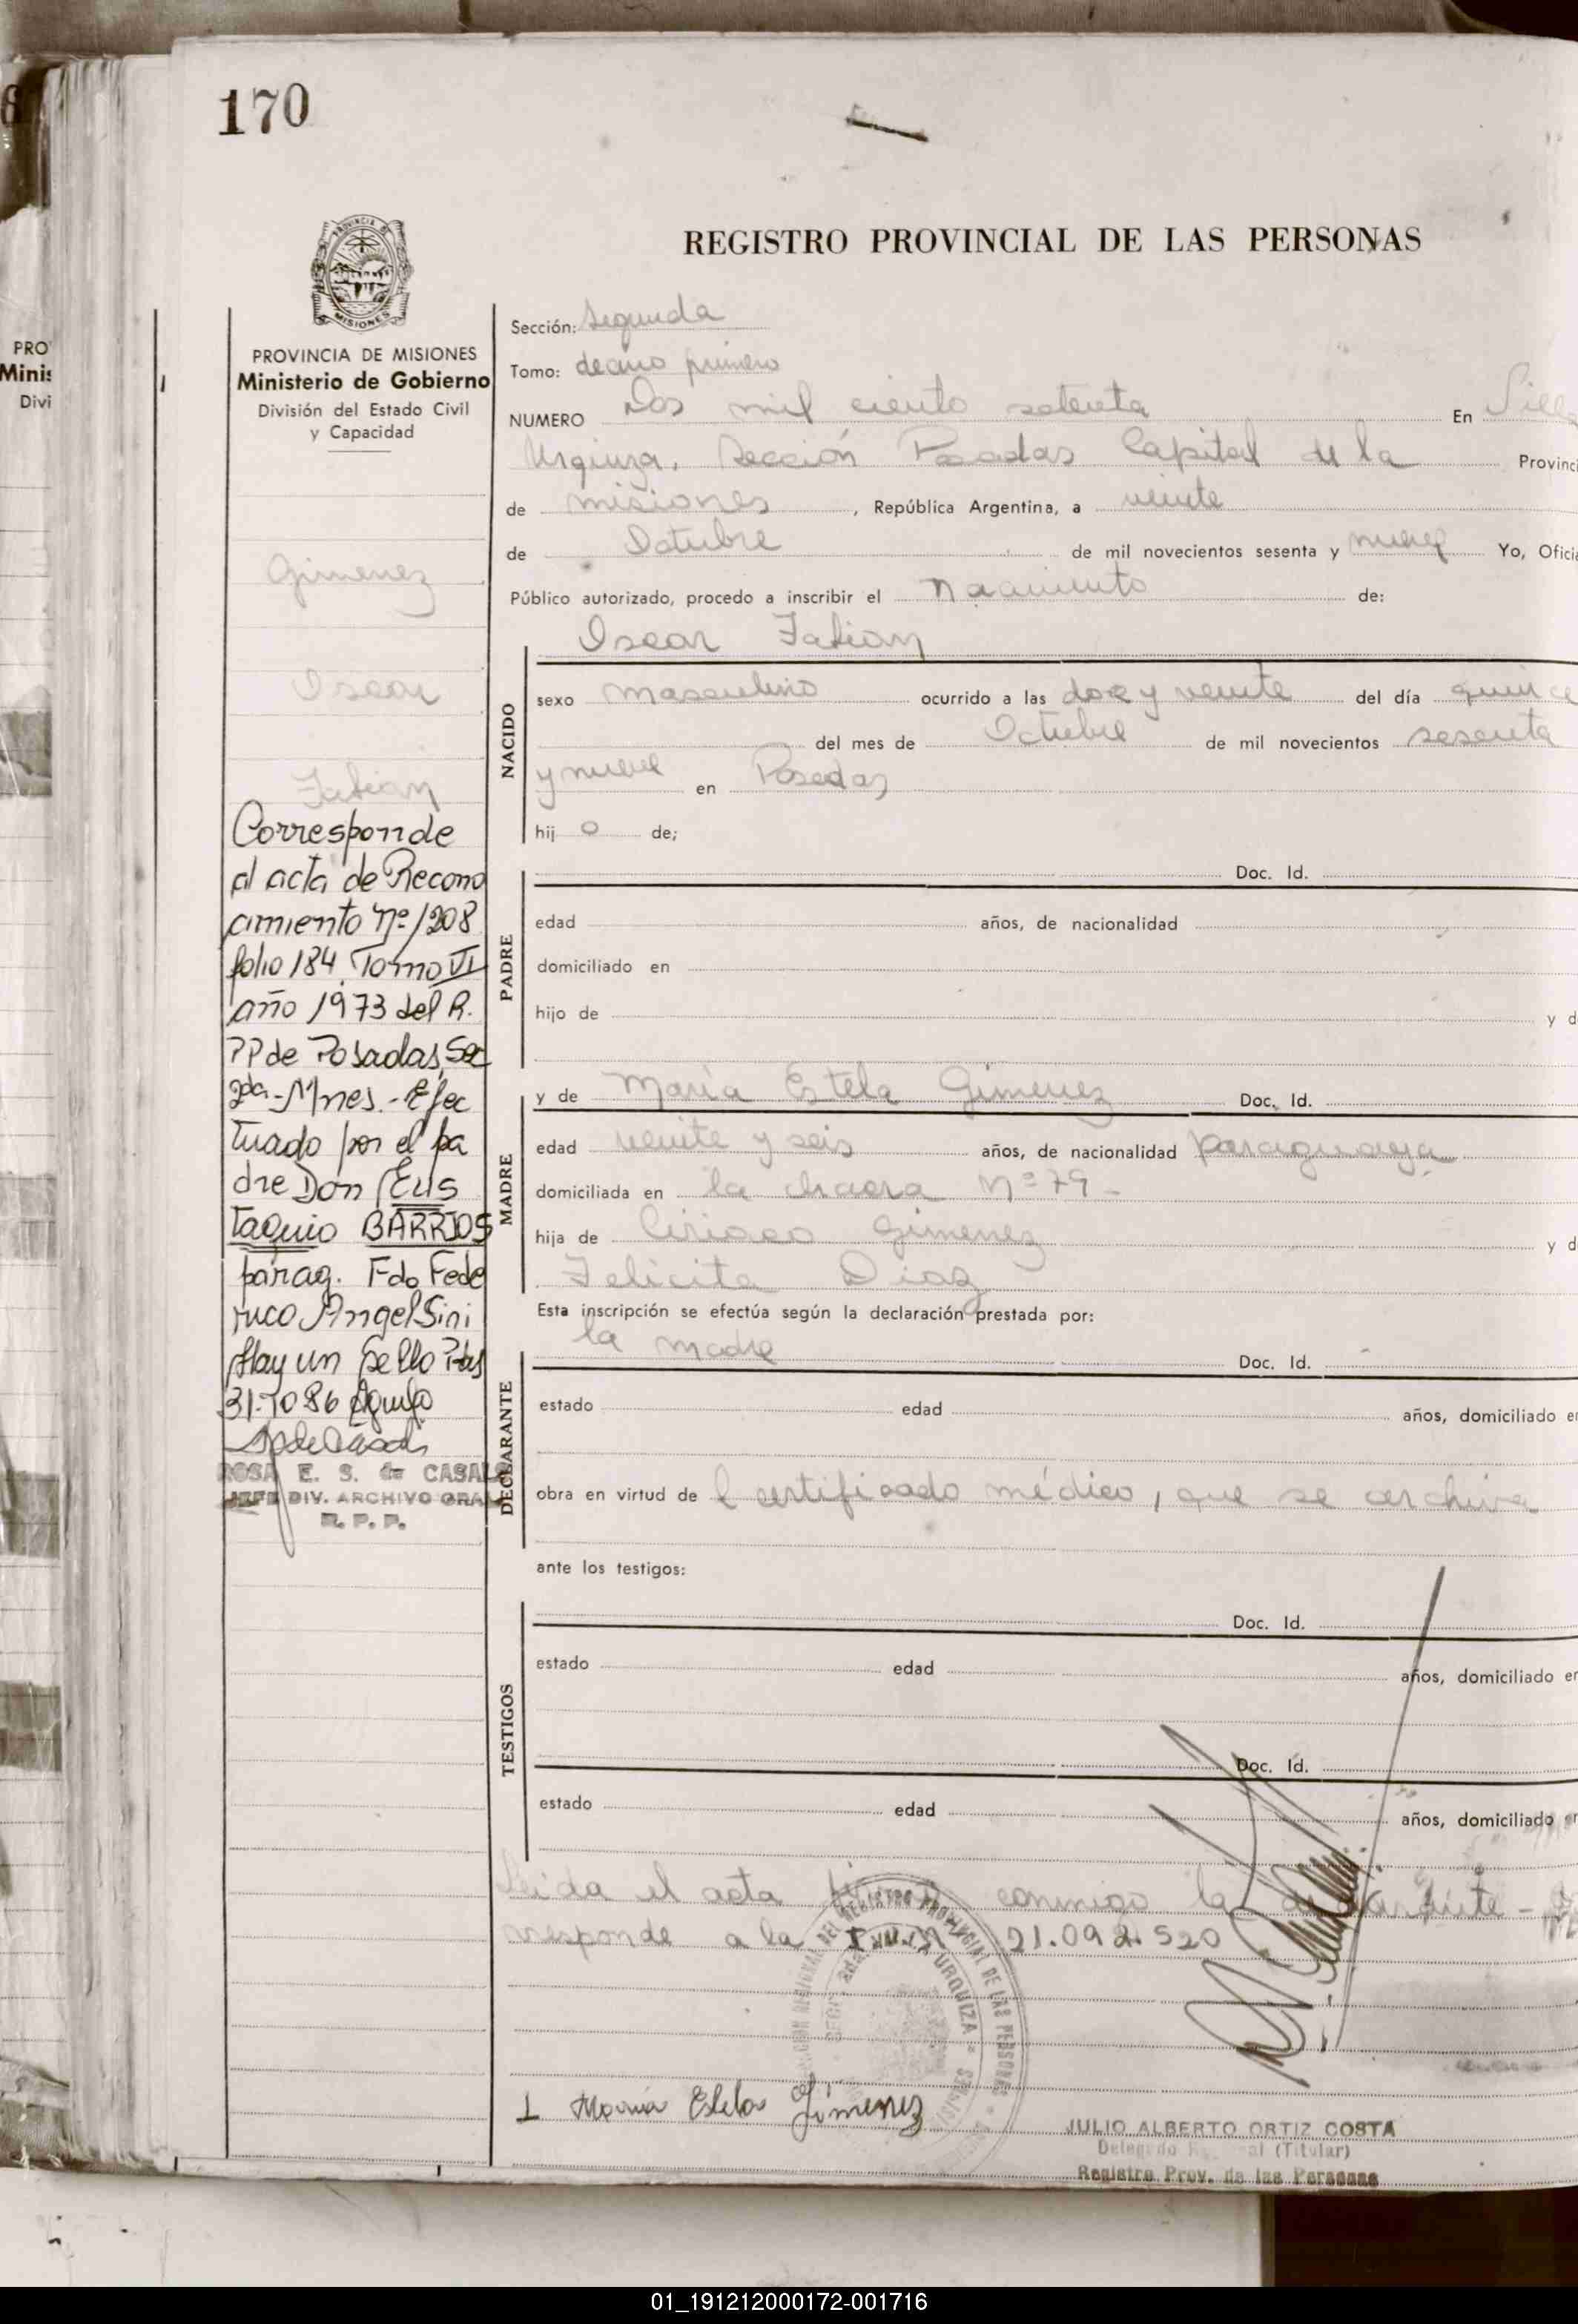 170
REGISTRO PROVINCIAL DE LAS PERSONAS
PROVINCIA DE
MISIONES
PROVINCIA DE MISIONES
Ministerio de Gobierno
División del Estado Civil
y Capacidad
Gimenez
Oscar
Fabian
Corresponde
al acta de Recono
cimiento Nº 1208
folio 184 Tomo VI
año 1973 del R.
PP de Posadas, Sec
2da.-Mnes.-Efec
tuado por el pa
dre Don Eus
taquio BARRIOS
parag. Fdo Fede
rico Angel Sini
Hay un sello Pdas
31-10 86
ROSA E. S. de CASALS
JEFE DIV. ARCHIVO GRAL
R. P. P.
Sección: Segunda
Tomo: decimo primero
NUMERO Dos mil ciento setenta En Villa
Urquiza, Sección Posadas Capital de la Provinci
de misiones, República Argentina, a veinte
de Octubre de mil novecientos sesenta y nueve Yo, Ofici
Público autorizado, procedo a inscribir el nacimiento de:
Oscar Fabian
NACIDO
sexo masculino ocurrido a las doce y veinte del día quince
del mes de Octubre de mil novecientos sesenta
y nueve en Posadas
hij o de;
PADRE
Doc. Id.
edad años, de nacionalidad
domiciliado en
hijo de y d
MADRE
y de Maria Estela Gimenez Doc. Id.
edad veinte y seis años, de nacionalidad paraguaya
domiciliada en la chacra Nº 79 -
hija de Ciriaco Gimenez y d
Felicita Diaz
Esta inscripción se efectúa según la declaración prestada por:
DECLARANTE
la madre Doc. Id.
estado edad años, domiciliado en
obra en virtud de l certificado médico, que se archiva
ante los testigos:
TESTIGOS
Doc. Id.
estado edad años, domiciliado en
Doc. Id.
estado edad años, domiciliado en
Leida el acta firma conmigo la declarante -
rresponde a la 21.092.520
REGISTRO PROVINCIAL DE LAS PERSONAS
URQUIZA
Maria Estela Gimenez
JULIO ALBERTO ORTIZ COSTA
Delegado (Titular)
Registro Prov. de las Personas
PRO
Minis
Divi
01_191212000172-001716